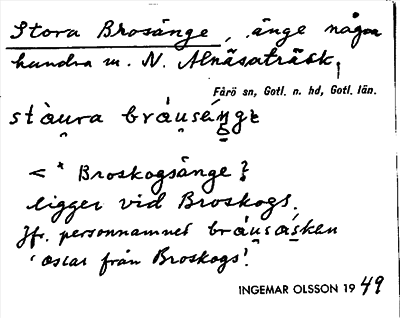 Stora Brosänge, änge några
hundra m. N. Alnäsaträsk,
Fårö sn, Gotl. n. hd, Gotl. län.
stàu̯ra bràu̯sáŋgɛ
< * Broskogsänge;
ligger vid Broskogs.
Jfr. personnamnet bràu̯sásken
'oscar från Broskogs'.
INGEMAR OLSSON 1949